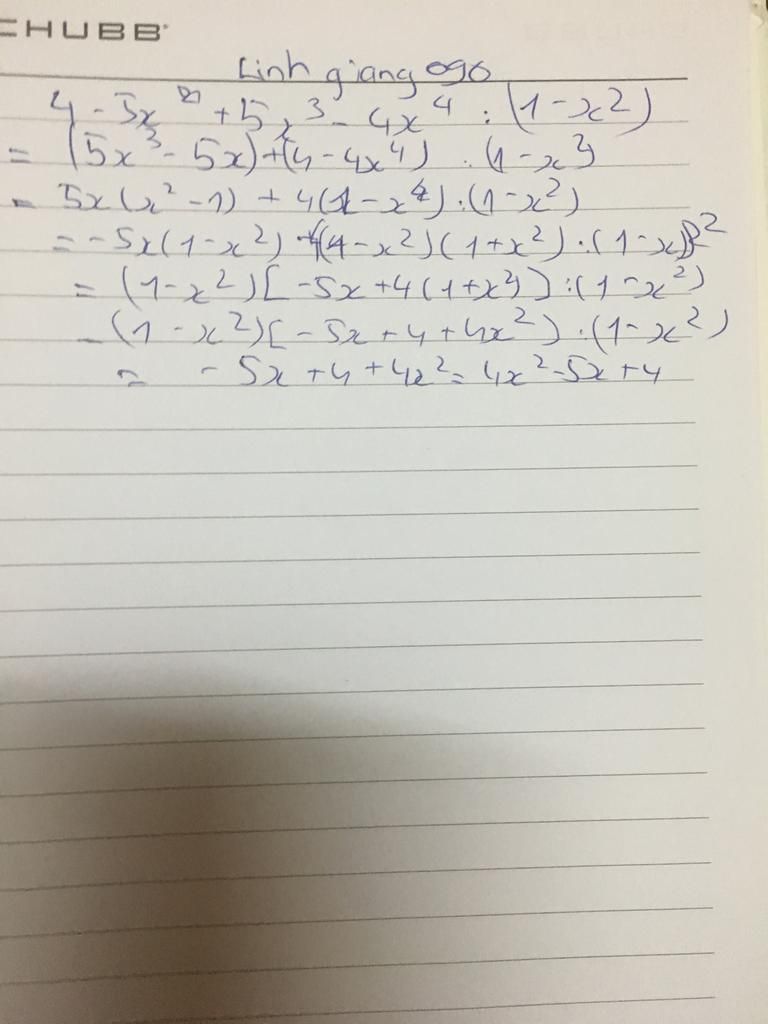 CHUBB
Linh giang 096
4 - 5x + 5x³ - 4x⁴ : (1 - x²)
= (5x³ - 5x) + (4 - 4x⁴) : (1 - x²)
= 5x(x² - 1) + 4(1 - x⁴) : (1 - x²)
= -5x(1 - x²) + 4(1 - x²)(1 + x²) : (1 - x²)
= (1 - x²)[-5x + 4(1 + x²)] : (1 - x²)
= (1 - x²)[-5x + 4 + 4x²] : (1 - x²)
= -5x + 4 + 4x² = 4x² - 5x + 4